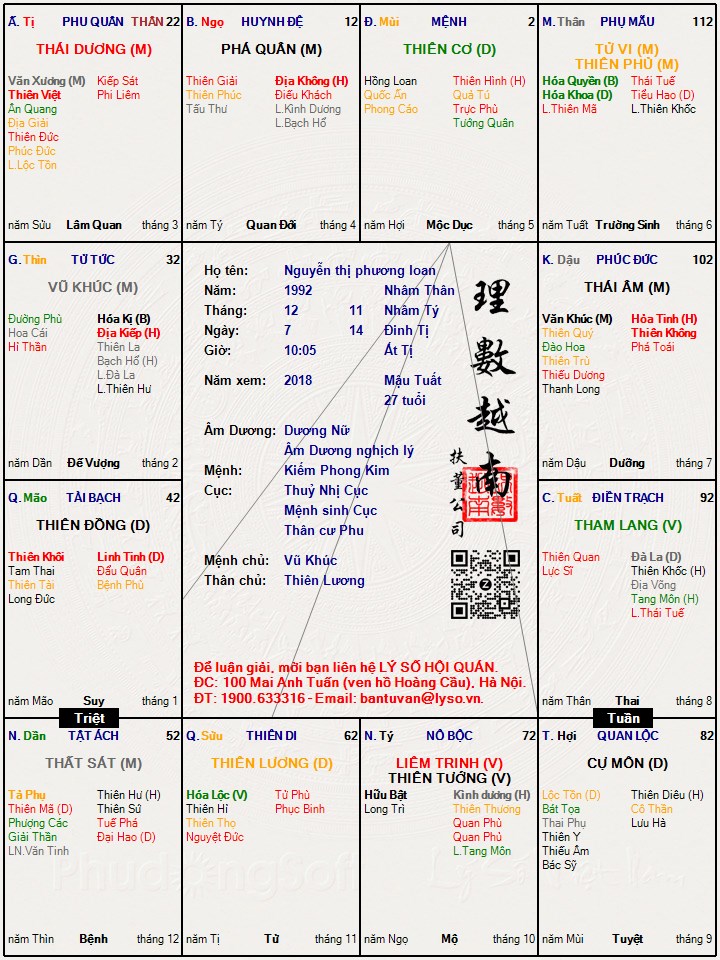 Ấ. Tị PHU QUÂN THÂN 22
THÁI DƯƠNG (M)
Văn Xương (M) Kiếp Sát
Thiên Việt Phi Liêm
Ân Quang
Địa Giải
Thiên Đức
Phúc Đức
L.Lộc Tồn
năm Sửu Lâm Quan tháng 3
B. Ngọ HUYNH ĐỆ 12
PHÁ QUÂN (M)
Thiên Giải Địa Không (H)
Thiên Phúc Điếu Khách
Tấu Thư L.Kình Dương
L.Bạch Hổ
năm Tý Quan Đới tháng 4
Đ. Mùi MỆNH 2
THIÊN CƠ (D)
Hồng Loan Thiên Hình (H)
Quốc Ấn Quả Tú
Phong Cáo Trực Phù
Tướng Quân
năm Hợi Mộc Dục tháng 5
M. Thân PHỤ MẪU 112
TỬ VI (M)
THIÊN PHỦ (M)
Hóa Quyền (B) Thái Tuế
Hóa Khoa (D) Tiểu Hao (D)
L.Thiên Mã L.Thiên Khốc
năm Tuất Trường Sinh tháng 6
G. Thìn TỬ TỨC 32
VŨ KHÚC (M)
Đường Phù Hóa Kị (B)
Hoa Cái Địa Kiếp (H)
Hỉ Thần Thiên La
Bạch Hổ (H)
L.Đà La
L.Thiên Hư
năm Dần Đế Vượng tháng 2
Họ tên: Nguyễn thị phương loan
Năm: 1992 Nhâm Thân
Tháng: 12 11 Nhâm Tý
Ngày: 7 14 Đinh Tị
Giờ: 10:05 Ất Tị
Năm xem: 2018 Mậu Tuất
27 tuổi
Âm Dương: Dương Nữ
Âm Dương nghịch lý
Mệnh: Kiếm Phong Kim
Cục: Thuỷ Nhị Cục
Mệnh sinh Cục
Thân cư Phu
Mệnh chủ: Vũ Khúc
Thân chủ: Thiên Lương
理數越南
扶董公司
Để luận giải, mời bạn liên hệ LÝ SỐ HỘI QUÁN.
ĐC: 100 Mai Anh Tuấn (ven hồ Hoàng Cầu), Hà Nội.
ĐT: 1900.633316 - Email: bantuvan@lyso.vn.
K. Dậu PHÚC ĐỨC 102
THÁI ÂM (M)
Văn Khúc (M) Hỏa Tinh (H)
Thiên Quý Thiên Không
Đào Hoa Phá Toái
Thiên Trù
Thiếu Dương
Thanh Long
năm Dậu Dưỡng tháng 7
Q. Mão TÀI BẠCH 42
THIÊN ĐỒNG (D)
Thiên Khôi Linh Tinh (D)
Tam Thai Đẩu Quân
Thiên Tài Bệnh Phù
Long Đức
năm Mão Suy tháng 1
Triệt
C. Tuất ĐIỀN TRẠCH 92
THAM LANG (V)
Thiên Quan Đà La (D)
Lực Sĩ Thiên Khốc (H)
Địa Võng
Tang Môn (H)
L.Thái Tuế
năm Thân Thai tháng 8
Tuần
N. Dần TẬT ÁCH 52
THẤT SÁT (M)
Tả Phụ Thiên Hư (H)
Thiên Mã (D) Thiên Sứ
Phượng Các Tuế Phá
Giải Thần Đại Hao (D)
LN.Văn Tinh
năm Thìn Bệnh tháng 12
Q. Sửu THIÊN DI 62
THIÊN LƯƠNG (D)
Hóa Lộc (V) Tử Phù
Thiên Hỉ Phục Binh
Thiên Thọ
Nguyệt Đức
năm Tị Tử tháng 11
N. Tý NÔ BỘC 72
LIÊM TRINH (V)
THIÊN TƯỚNG (V)
Hữu Bật Kình dương (H)
Long Trì Thiên Thương
Quan Phù
Quan Phủ
L.Tang Môn
năm Ngọ Mộ tháng 10
T. Hợi QUAN LỘC 82
CỰ MÔN (D)
Lộc Tồn (D) Thiên Diêu (H)
Bát Tọa Cô Thần
Thai Phụ Lưu Hà
Thiên Y
Thiếu Âm
Bác Sỹ
năm Mùi Tuyệt tháng 9